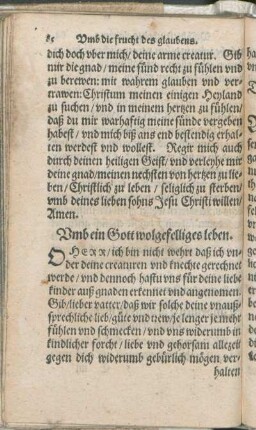 Vmb die frucht des glaubens.
dich doch vber mich/ deine arme creatur. Gib
mir die gnad/ meine sünd recht zu fühlen vnd
zu berewen: mit wahrem glauben vnd ver-
trawen: Christum meinen einigen Heyland
zu suchen/ vnd in meinem hertzen zu fühlen/
daß du mir warhafftig meine sünde vergeben
habest/ vnd mich biß ans end bestendig erhal-
ten werdest vnd wollest. Regir mich auch
durch deinen heiligen Geist/ vnd verleyhe mir
deine gnad/ meinen nechsten von hertzen zu lie-
ben/ Christlich zu leben/ seliglich zu sterben/
vmb deines lieben sohns Jesu Christi willen/
Amen.
Vmb ein Gott wolgefelliges leben.
O HERR/ ich bin nicht wehrt daß ich vn-
der deine creaturen vnd knechte gerechnet
werde/ vnd dennoch hastu vns für deine liebe
kinder auß gnaden erkennet vnd angenomen.
Gib/ lieber vatter/ daß wir solche deine vnauß-
sprechliche lieb/ güte vnd trew/ je lenger je mehr
fühlen vnd schmecken/ vnd vns widerumb in
kindlicher forcht/ liebe vnd gehorsam allezeit
gegen dich widerumb gebürlich mögen ver-
halten